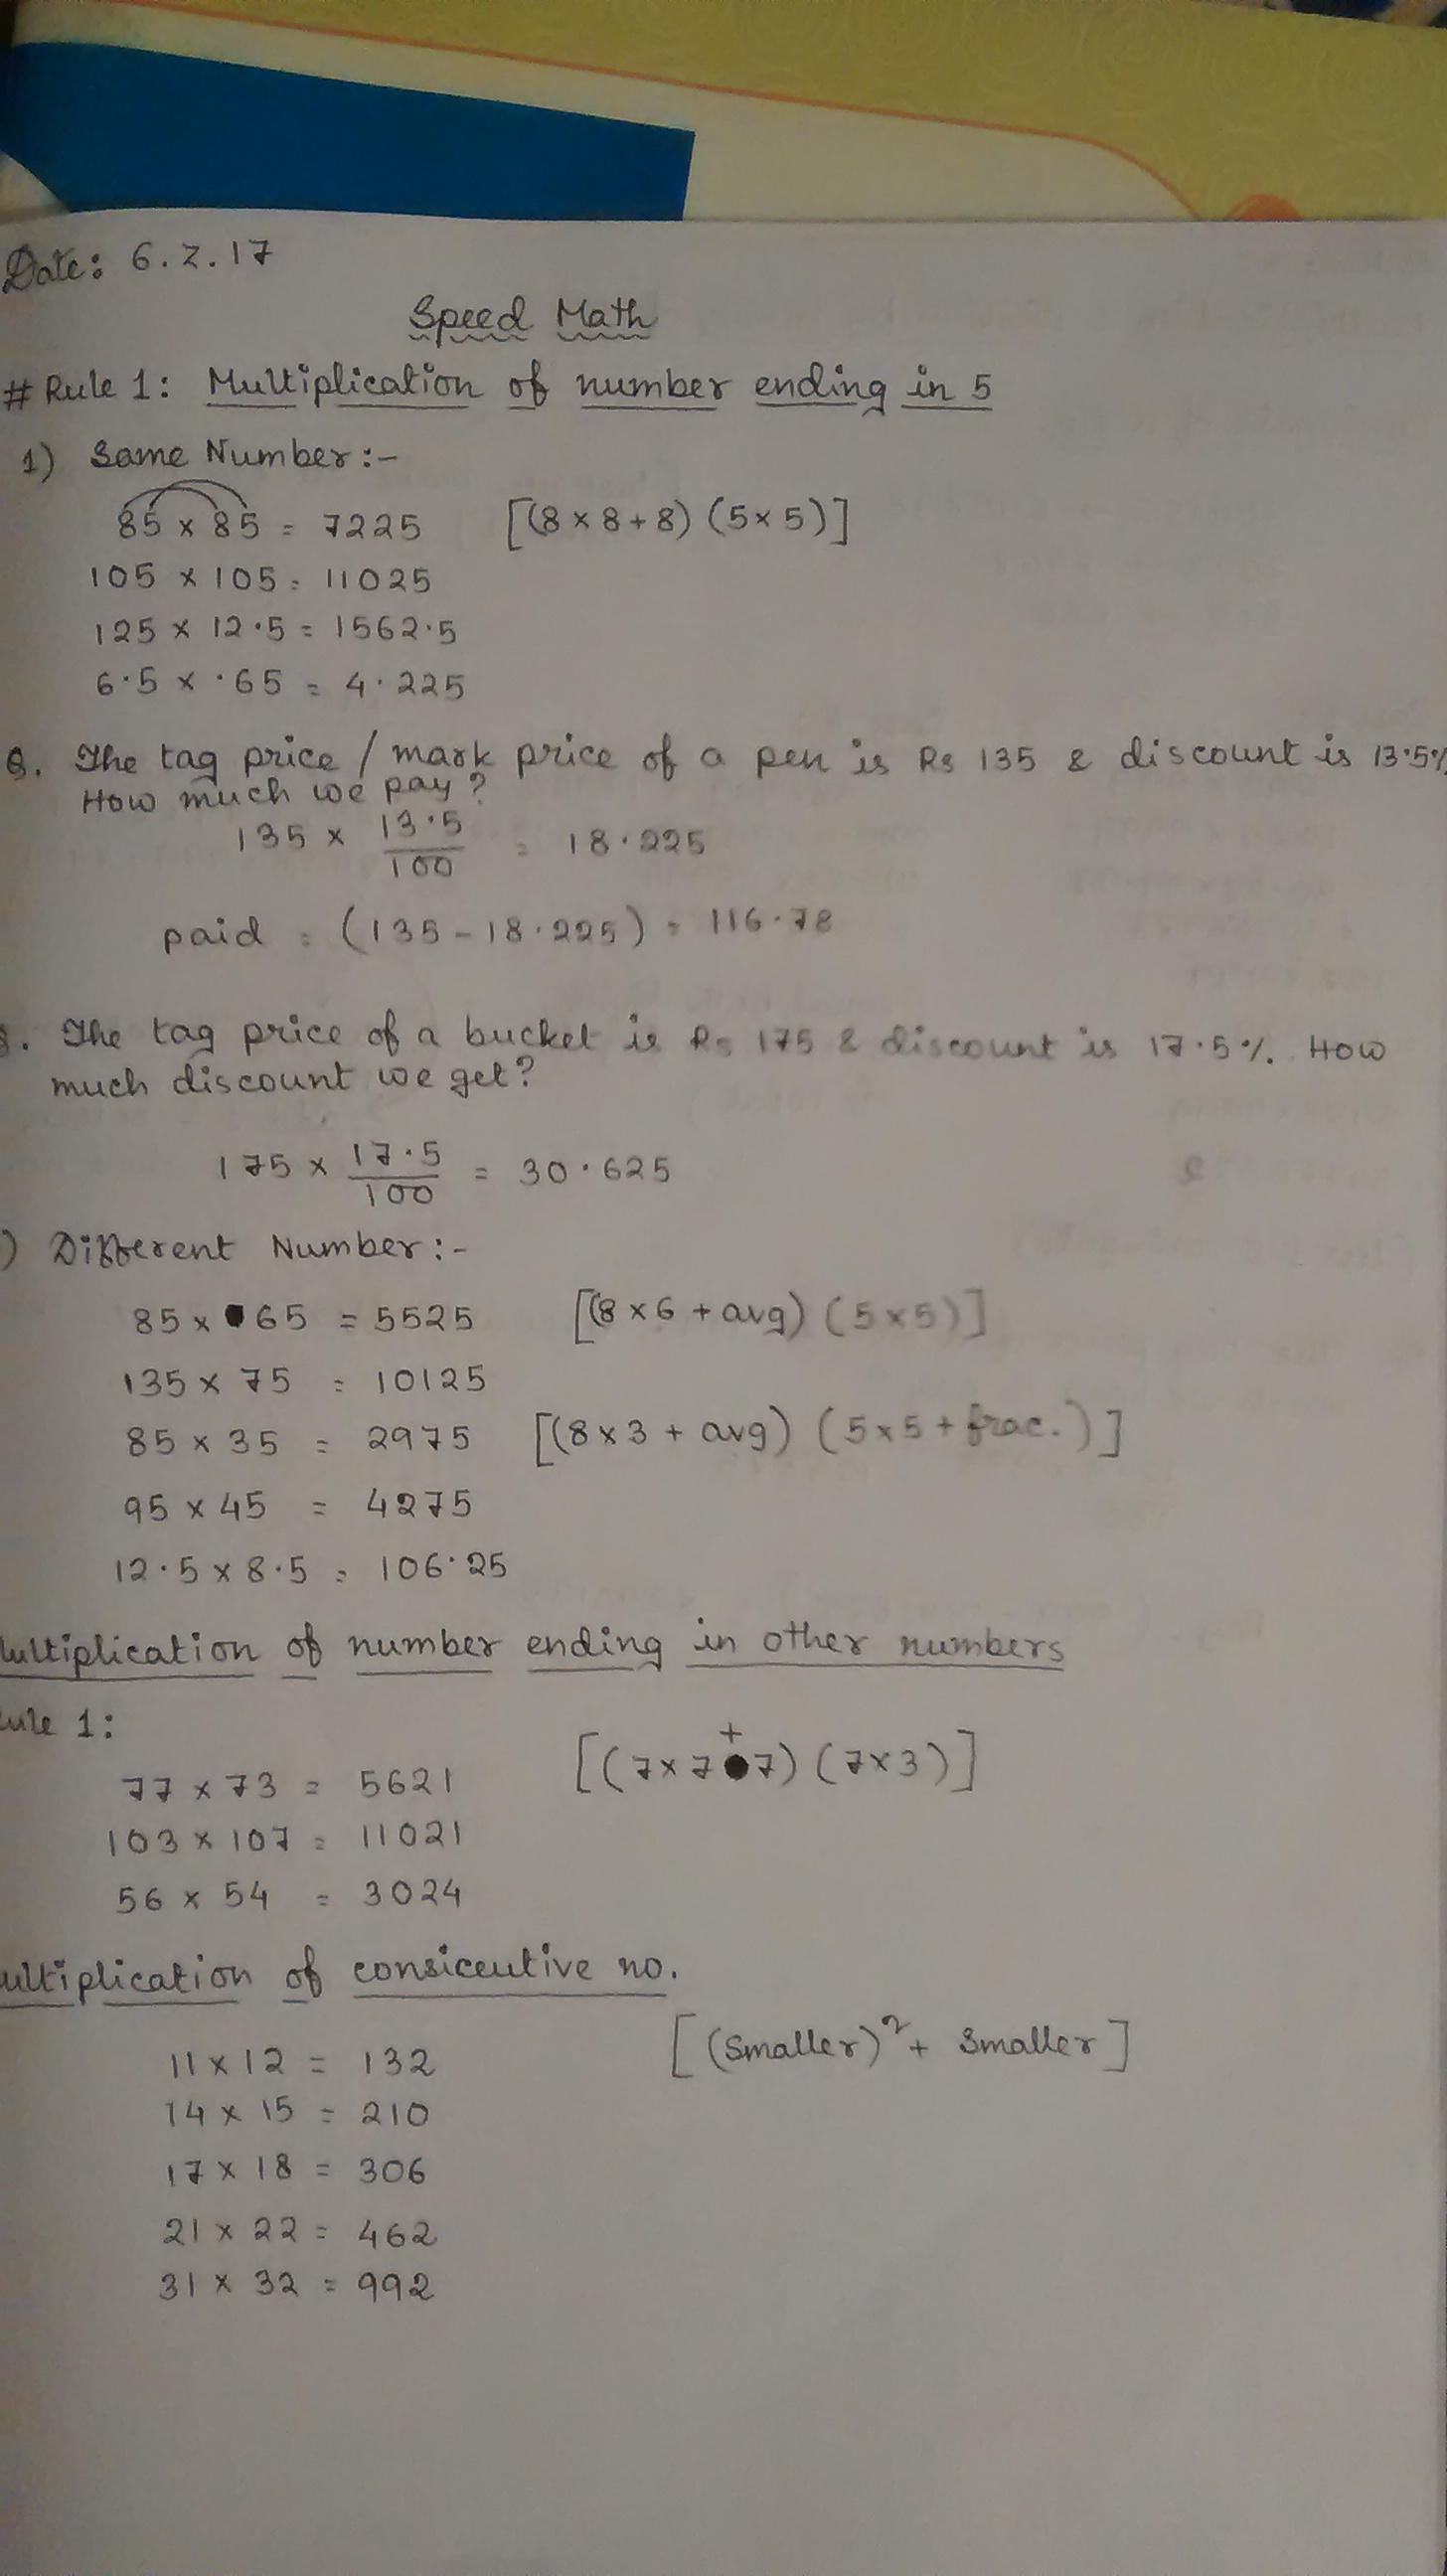 Date: 6.2.17
Speed Math
# Rule 1: Multiplication of number ending in 5
1) Same Number:-
85 × 85 = 7225 [(8 × 8 + 8) (5 × 5)]
105 × 105 = 11025
125 × 12.5 = 1562.5
6.5 × .65 = 4.225
Q. The tag price / mark price of a pen is Rs 135 & discount is 13.5%
How much we pay?
135 × 13.5/100 = 18.225
paid = (135 - 18.225) = 116.78
Q. The tag price of a bucket is Rs 175 & discount is 17.5%. How
much discount we get?
175 × 17.5/100 = 30.625
) Different Number:-
85 × 65 = 5525 [(8 × 6 + avg) (5 × 5)]
135 × 75 = 10125
85 × 35 = 2975 [(8 × 3 + avg) (5 × 5 + frac.)]
95 × 45 = 4275
12.5 × 8.5 = 106.25
ultiplication of number ending in other numbers
ule 1:
77 × 73 = 5621 [(7 × 7 + 7) (7 × 3)]
103 × 107 = 11021
56 × 54 = 3024
ultiplication of consiceutive no.
11 × 12 = 132 [(Smaller)² + Smaller]
14 × 15 = 210
17 × 18 = 306
21 × 22 = 462
31 × 32 = 992